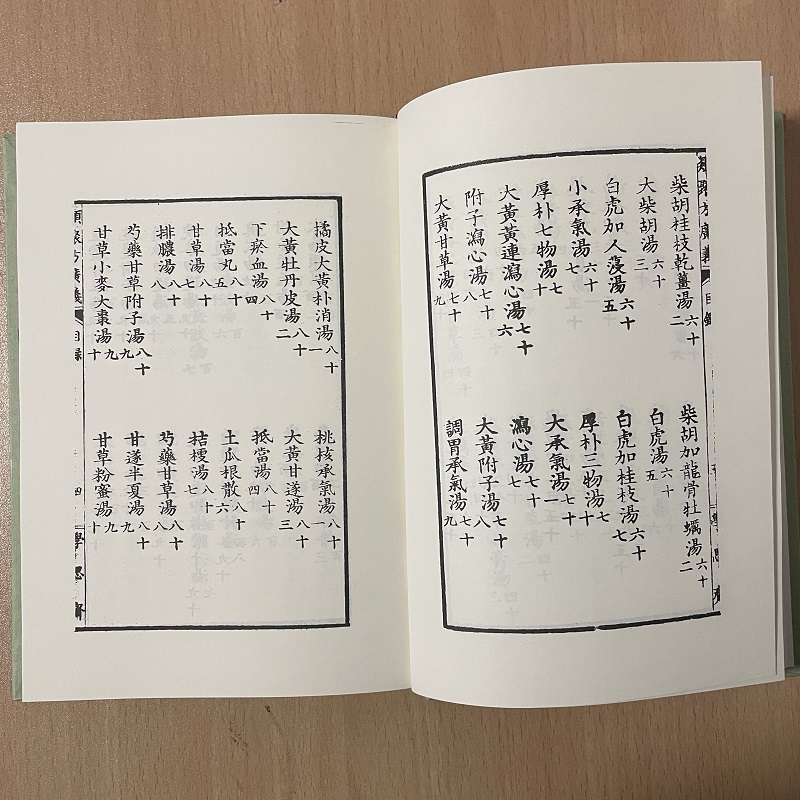 類聚方廣義 目錄
柴胡桂枝乾薑湯 六十二
大柴胡湯 六十三
白虎加人蓡湯 六十五
小承氣湯 六十七
厚朴七物湯 七十
大黃黃連瀉心湯 七十六
附子瀉心湯 七十八
大黃甘草湯 七十九
柴胡加龍骨牡蠣湯 六十二
白虎湯 六十五
白虎加桂枝湯
厚朴三物湯 七十
大承氣湯 七十一
瀉心湯 七十七
大黃附子湯 七十八
調胃承氣湯 七十九
橘皮大黃朴消湯 八十一
大黃牡丹皮湯 八十二
下瘀血湯 八十四
抵當丸 八十五
甘草湯 八十七
排膿湯 八十八
芍藥甘草附子湯 八十九
甘草小麥大棗湯 九十
桃核承氣湯 八十一
大黃甘遂湯 八十三
抵當湯 八十四
土瓜根散 八十六
桔梗湯 八十七
芍藥甘草湯 八十九
甘遂半夏湯 八十九
甘草粉蜜湯 九十
類聚方廣義 目錄 四 學思齋